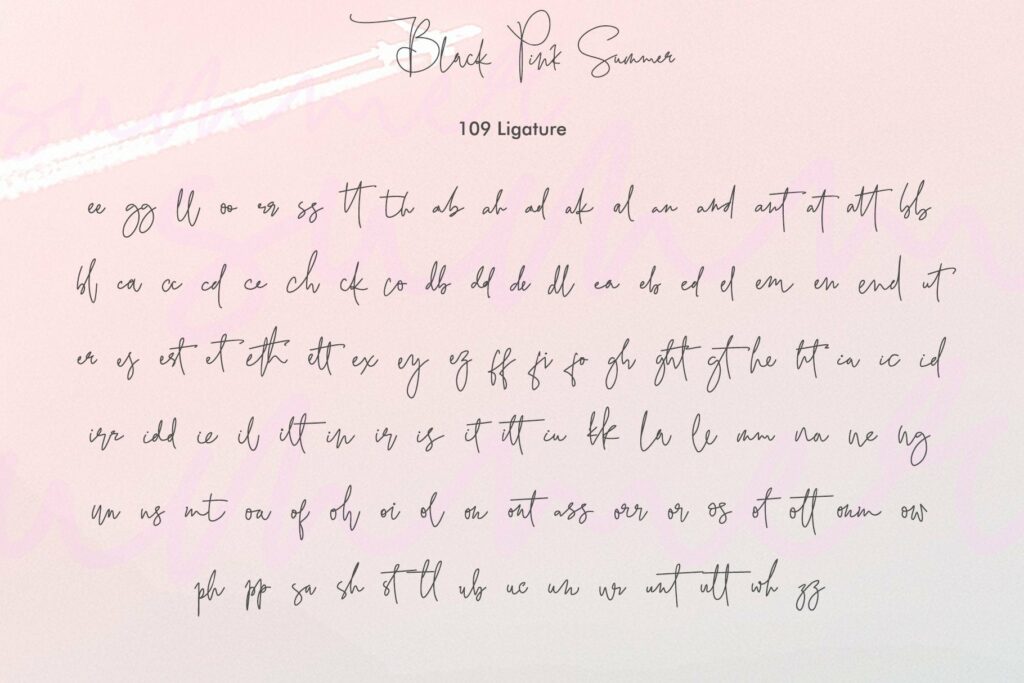 Black Pink Summer
109 Ligature
ee gg ll oo rr ss tt th ab ah ad ak al an and ant at att bb
bl ca cc cd ce ch ck co db dd de dl ea eb ed el em en end ut
er es est et eth ett ex ey ez ff fi fo gh ght gt he ht ia ic id
irr idd ie il ilt in ir is it itt iu kk la le mm na ne ng
nn ns mt oa of oh oi ol on ont ass orr or os ot ott oum ow
ph pp sa sh st tl ub uc un ur unt utt wh zz